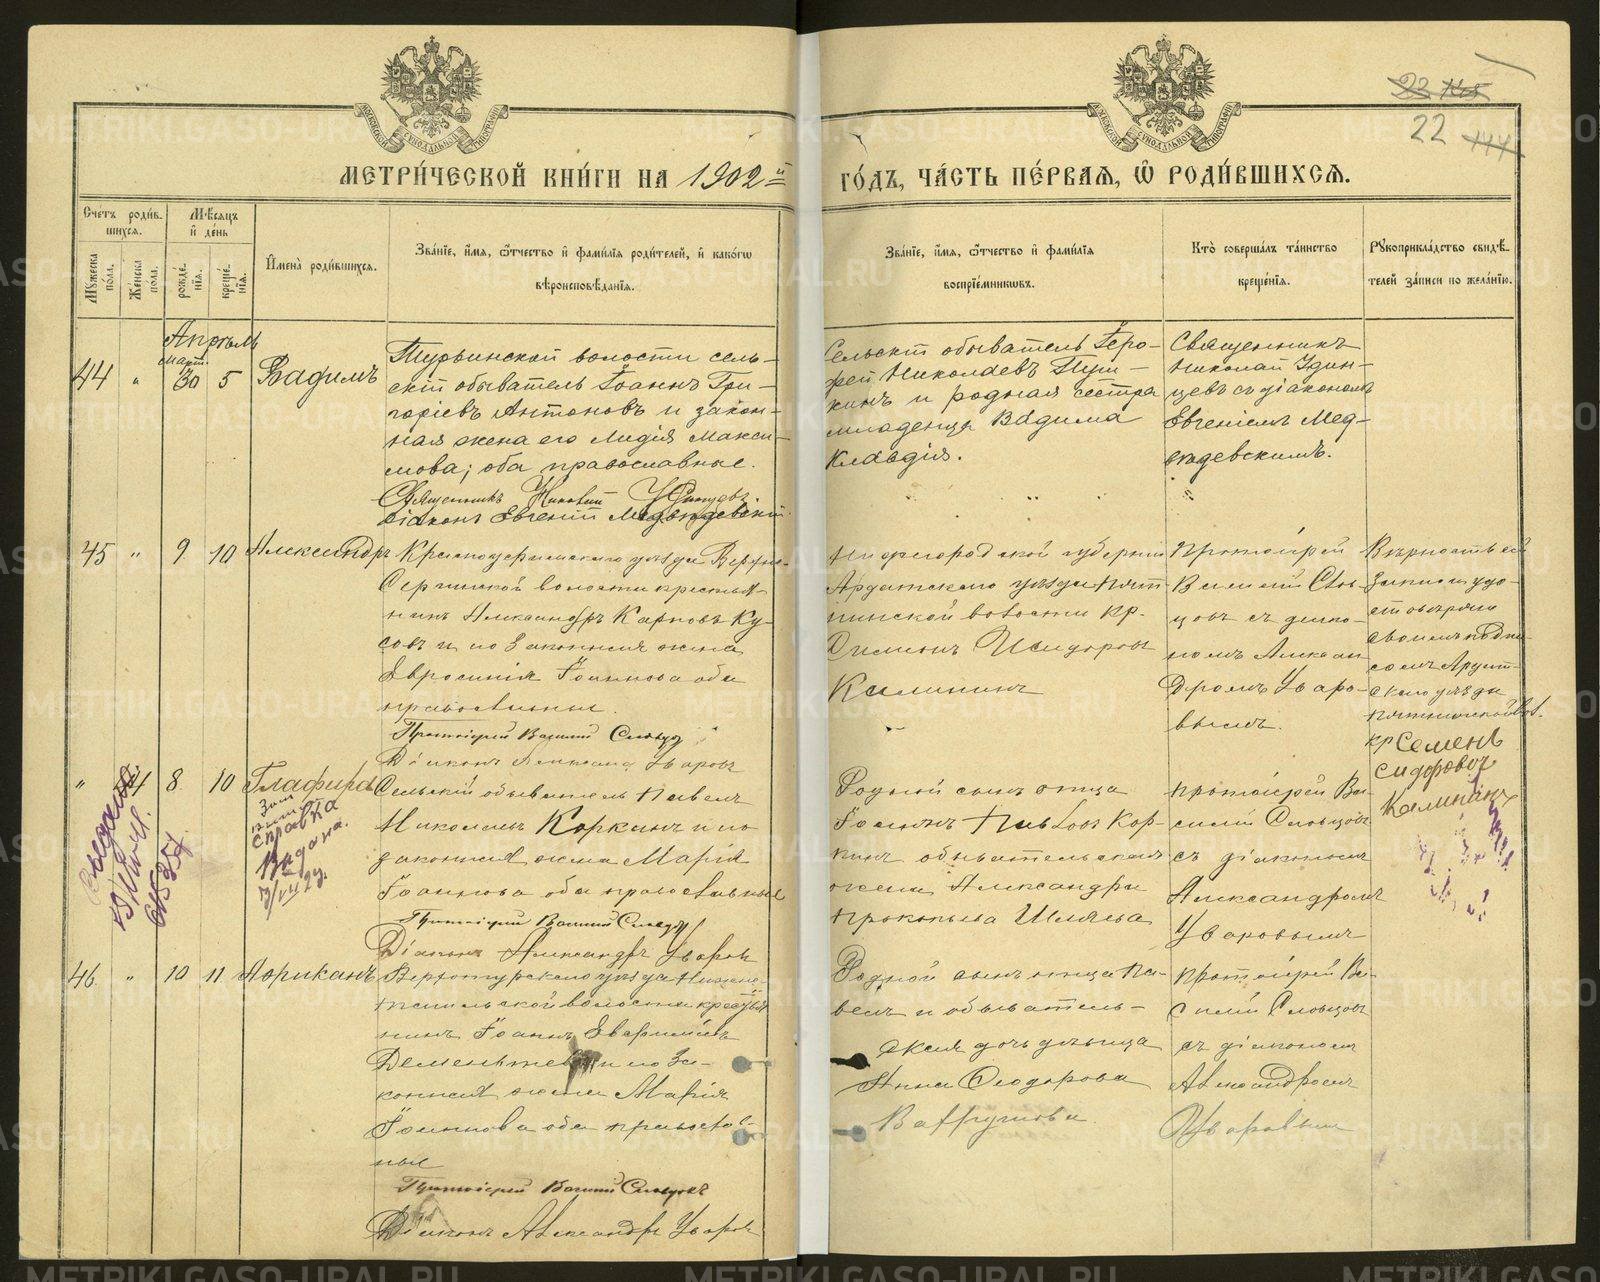 23
22
МЕТРИ́ЧЕСКОЙ КНИ́ГИ НА 1902й
ГО́ДЪ, ЧА́СТЬ ПЕ́РВАЯ, Ѡ РОДИ́ВШИХСЯ.
Сче́тъ роди́в-
шихся.
Мꙋ́жеска
по́ла.
Же́нска
по́ла.
Мѣ́сяцъ
и҆ де́нь
рожде́-
нія.
креще́-
нія.
И҆мена̀ роди́вшихся.
Зва́ніе, и҆́мя, ѻ҆́тчество и҆ фами́лія роди́телей, и҆ како́гѡ
вѣроисповѣ́данія.
Зва́ніе, и҆́мя, ѻ҆́тчество и҆ фами́лія
воспріе́мникѡвъ.
Кто̀ соверша́лъ та́инство
креще́нія.
Рꙋкоприкла́дство свидѣ́-
телей за́писи по жела́нію.
Апрѣль
44
"
Март.
30
5
Вадимъ
Турьинской волости сель-
скій обыватель Іоаннъ Гри-
горіевъ Антоновъ и закон-
ная жена его Лидія Макси-
мова; оба православные.
Священникъ Николай Удинцевъ.
Діаконъ Евгеній Медвѣдевскій
Сельскій обыватель Іеро-
фей Николаевъ Пуш-
кинъ и родная сестра
младенца Вадима
Клавдія.
Священникъ
Николай Удин-
цевъ съ діакономъ
Евгеніемъ Мед-
вѣдевскимъ.
45
"
9
10
Александръ
Красноуфимскаго уѣзда Верхне-
Сергинской волости крестья-
нинъ Александръ Карповъ Ку-
совъ и его законная жена
Евросинія Іоаннова оба
православные.
Протоіерей Василій Словцовъ
Діаконъ Александръ Уваровъ
Нижегородской губерніи
Ардатскаго уѣзда Пят-
ницкой волости кр.
Симеонъ Исидоровъ
Калининъ
Протоіерей
Василій Слов-
цовъ съ діако-
номъ Алексан
дромъ Уваро-
вымъ.
Вѣрность сей
записи удо-
стовѣряю
своимъ подпи-
сомъ Ардат-
скаго уѣзда
Пятницкой вол.
кр Семенъ
Сидоровъ
Калининъ
"
41
8
10
Глафира
справка
выдана.
Сельскій обыватель Павелъ
Николаевъ Коркинъ и его
законная жена Марія
Іоаннова оба православные
Протоіерей Василій Словцовъ
Діаконъ Александръ Уваровъ
Родной сынъ отца
Іоаннъ Павловъ Кор-
кинъ обывательская
жена Александра
Прокопьева Шиляева
Протоіерей Ва-
силій Словцовъ
съ діакономъ
Александромъ
Уваровымъ
46
"
10
11
Африканъ
Верхотурскаго уѣзда Нижне-
тагильской волости крестья
нинъ Іоаннъ Евфиміевъ
Дементьевъ и его за-
конная жена Марія
Іоаннова оба православ-
ные
Протоіерей Василій Словцовъ
Діаконъ Александръ Уваровъ
Родной сынъ отца Па-
велъ и обыватель-
ская дочь дѣвица
Анна Ѳеодорова
Вахрушева
Протоіерей Ва-
силій Словцовъ
съ діакономъ
Александромъ
Уваровымъ
METRIKI.GASO-URAL.RU